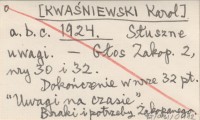 [KWAŚNIEWSKI Karol]
a.b.c. 1924. Słuszne
uwagi. — Głos Zakop. 2,
nry 30 i 32.
Dokończenie w nrze 32 pt.
"Uwagi na czasie".
Braki i potrzeby Zakopanego.